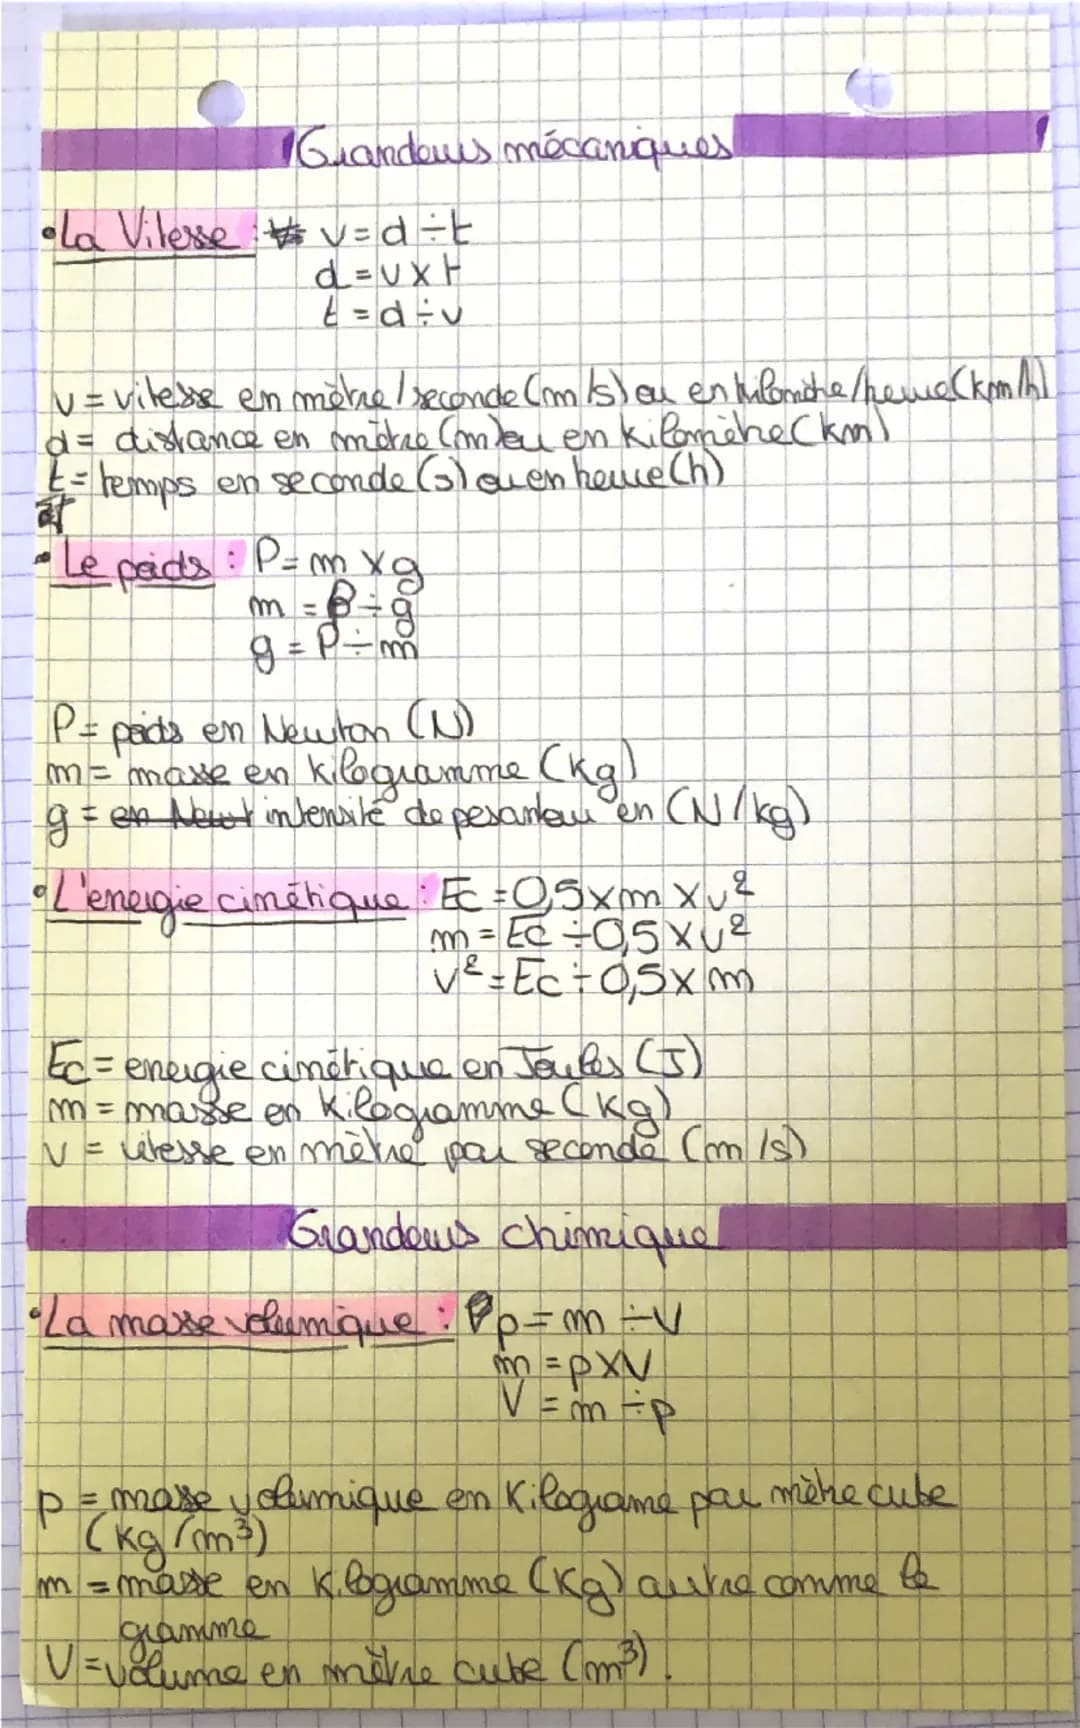 Grandeurs mécaniques
• La Vitesse : v = d ÷ t
d = v x t
t = d ÷ v
v = vitesse en mètre/seconde (m/s) ou en kilomètre/heure (km/h)
d = distance en mètre (m) ou en kilomètre (km)
t = temps en seconde (s) ou en heure (h)
• Le poids : P = m x g
m = P ÷ g
g = P ÷ m
P = poids en Newton (N)
m = masse en kilogramme (kg)
g = en Newt intensité de pesanteur en (N/kg)
• L'energie cinétique : Ec = 0,5 x m x v²
m = Ec ÷ 0,5 x v²
v² = Ec ÷ 0,5 x m
Ec = energie cinétique en Joules (J)
m = masse en kilogramme (kg)
v = vitesse en mètre par seconde (m/s)
Grandeurs chimique
• La masse volumique : p = m ÷ V
m = p x V
V = m ÷ p
p = masse volumique en kilograme par mètre cube
(kg/m³)
m = masse en kilogramme (kg) autre comme le
gramme
V = volume en mètre cube (m³).